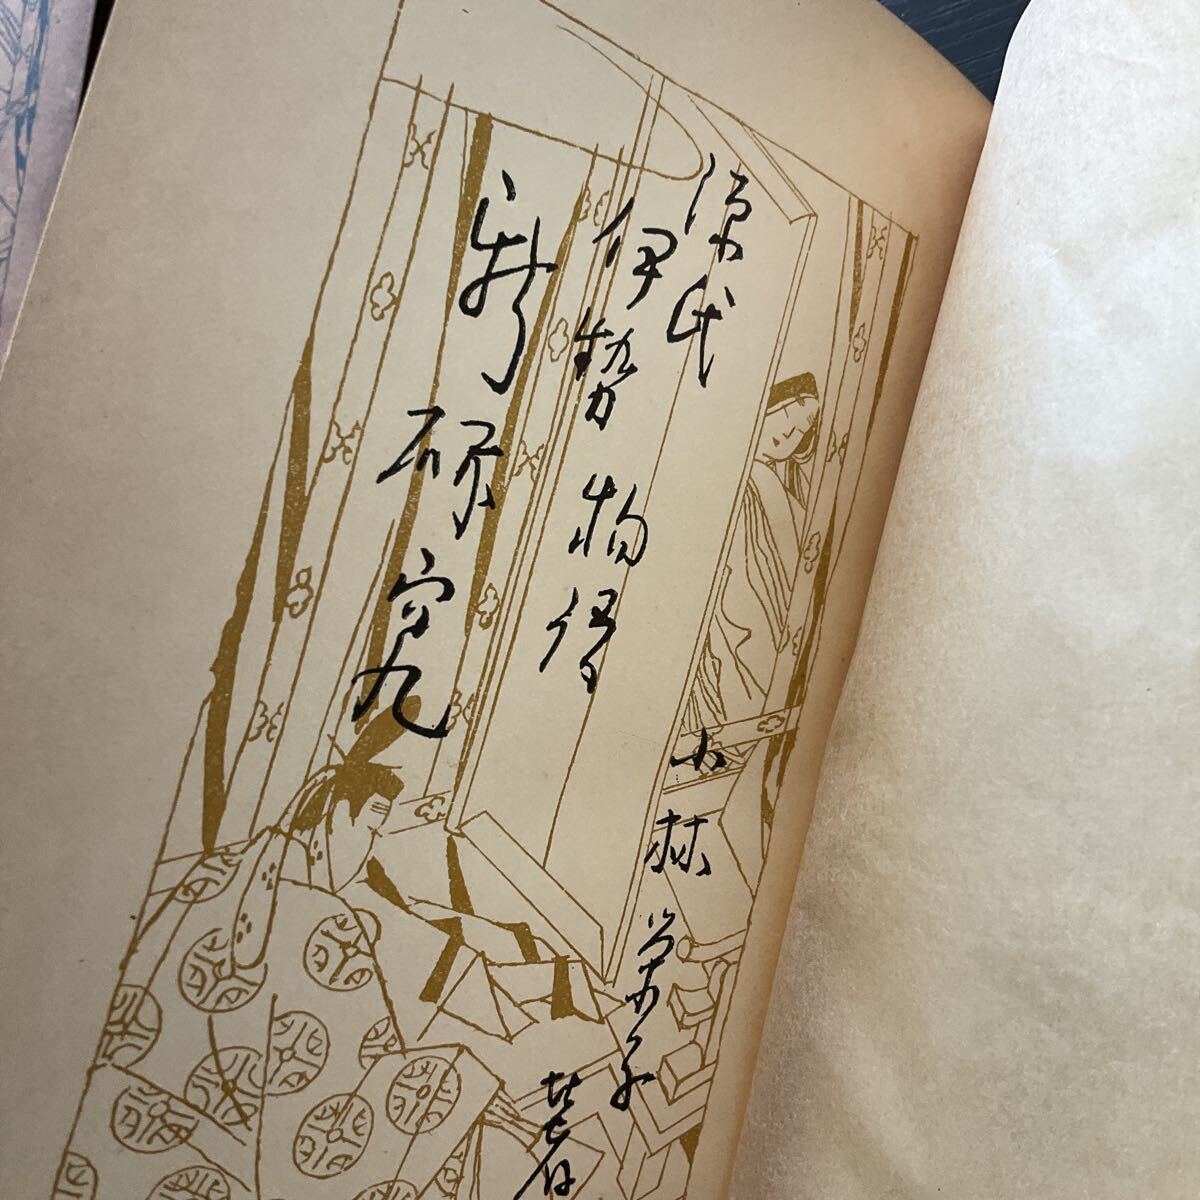 源氏
伊勢物語
新研究
小林栄子
著